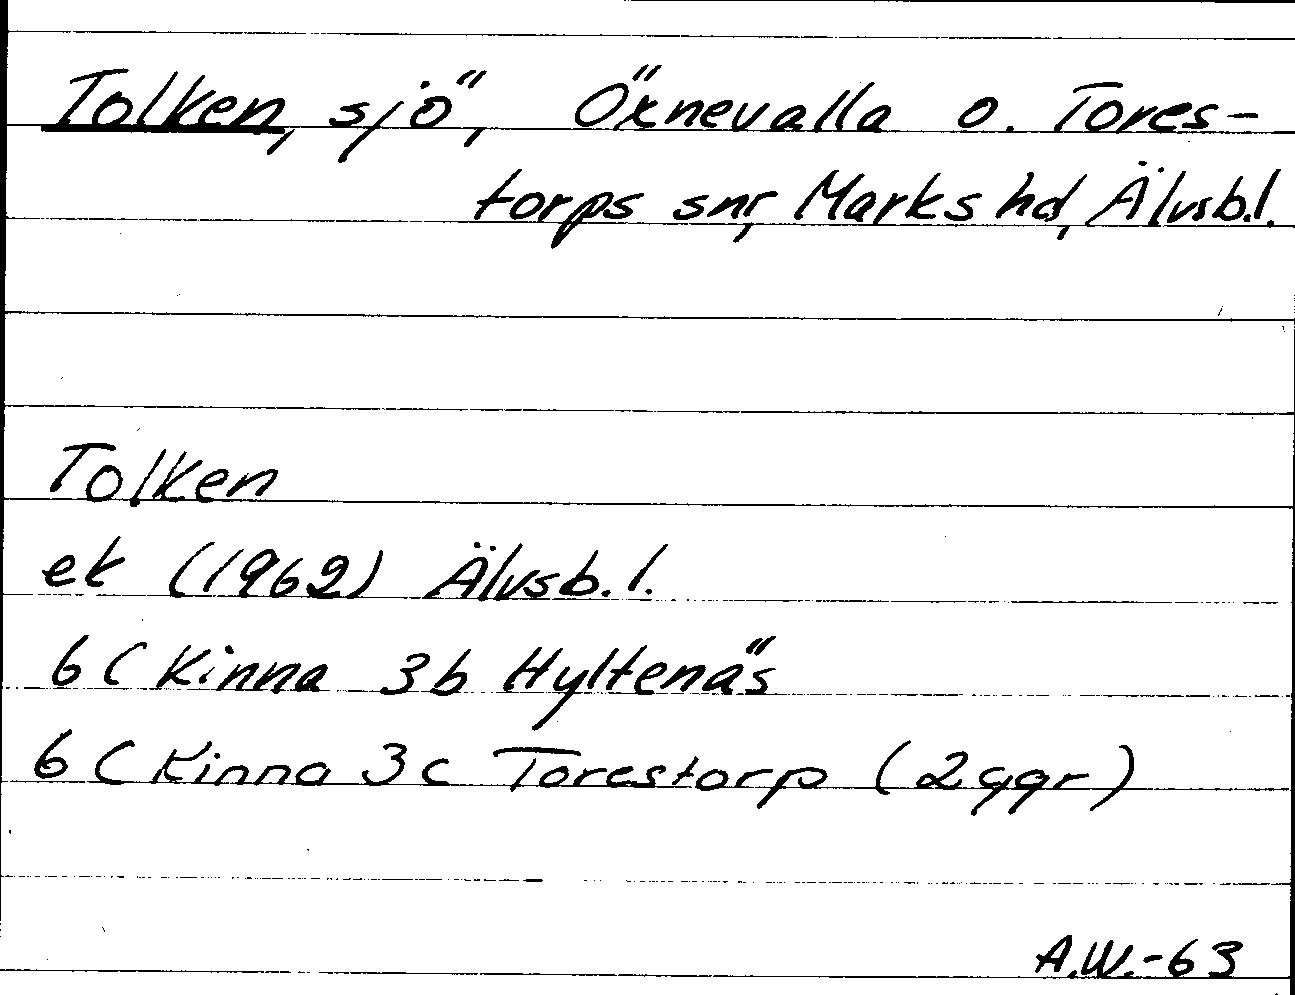 Tolken, sjö, Öxnevalla o. Tores-
torps snr, Marks hd, Älvsb.l.
Tolken
ek (1962) Älvsb.l.
6C Kinna 3b Hyltenäs
6C Kinna 3c Torestorp (2ggr)
A.W.-63